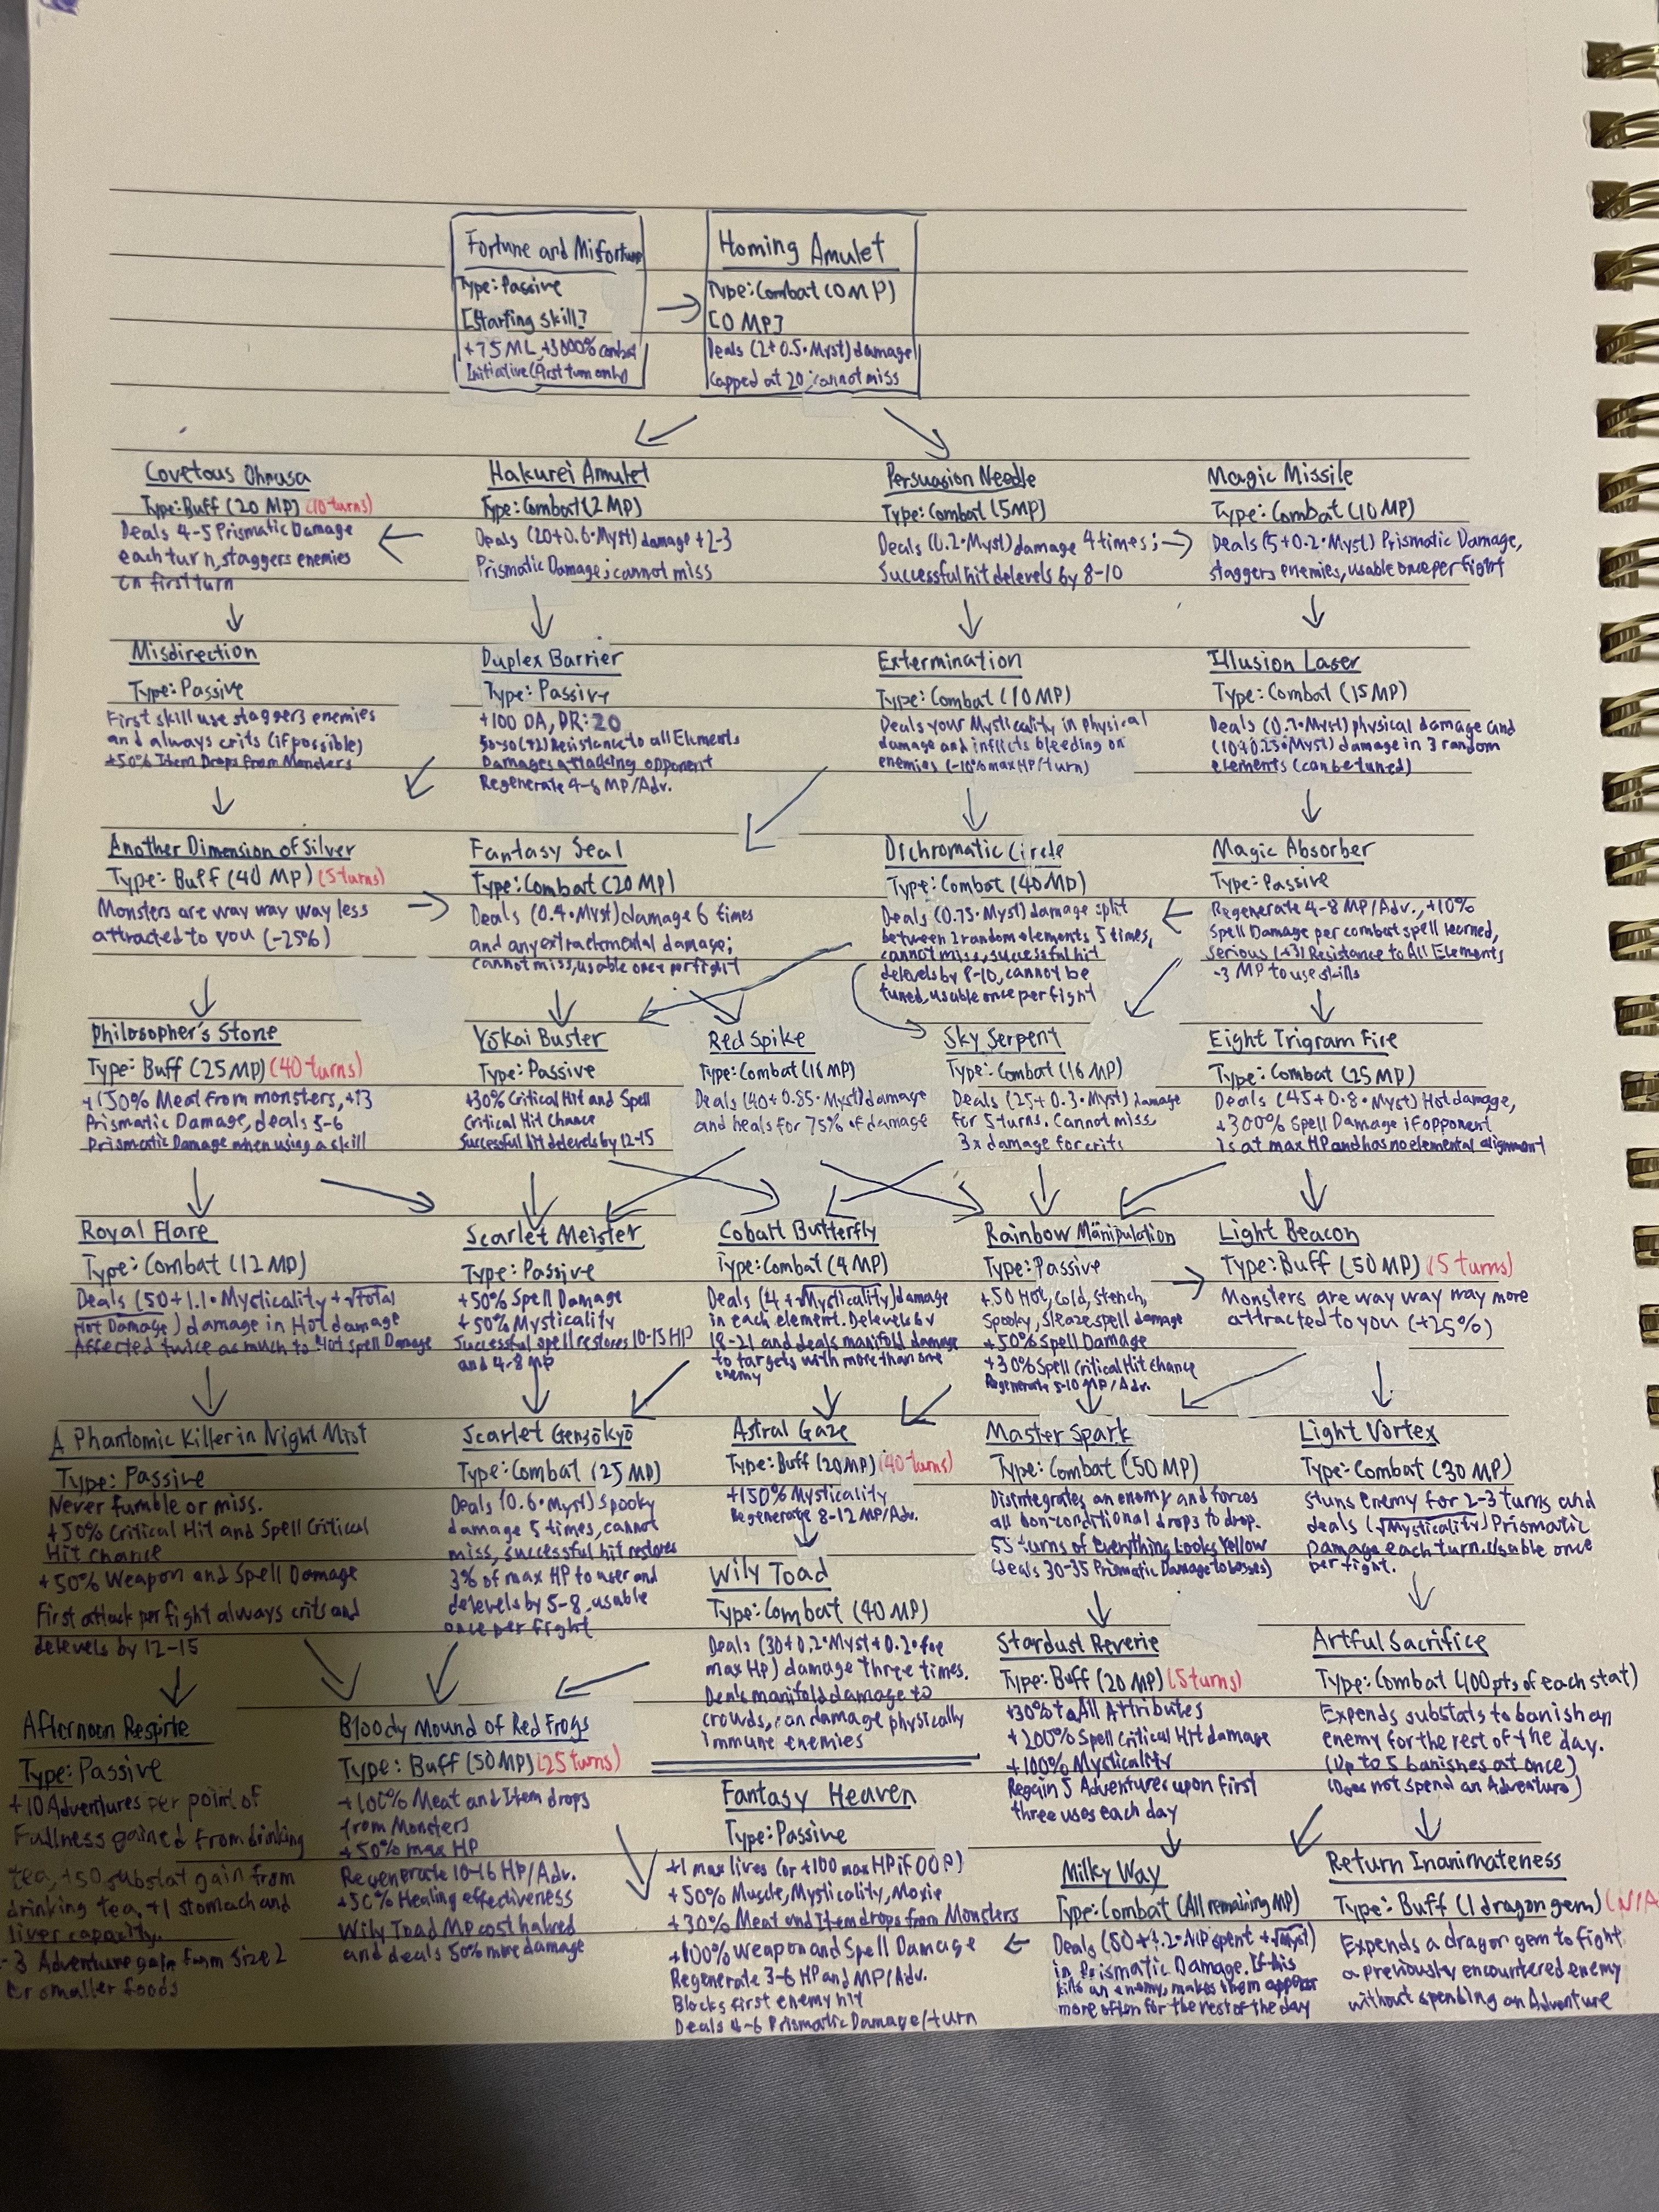 Fortune and Misfortune
Type: Passive
[Starting skill]
+75 ML, +3000% combat
Initiative (first turn only)
Homing Amulet
Type: Combat (0 MP)
[0 MP]
Deals (2+0.5•Myst) damage
capped at 20; cannot miss
Covetous Ohnusa
Type: Buff (20 MP) (10 turns)
Deals 4-5 Prismatic Damage
each turn, staggers enemies
on first turn
Hakurei Amulet
Type: Combat (2 MP)
Deals (20+0.6•Myst) damage +2-3
Prismatic Damage; cannot miss
Persuasion Needle
Type: Combat (5MP)
Deals (0.2•Myst) damage 4 times;
Successful hit delevels by 8-10
Magic Missile
Type: Combat (10 MP)
Deals (5+0.2•Myst) Prismatic Damage,
staggers enemies, usable once per fight
Misdirection
Type: Passive
First skill use staggers enemies
and always crits (if possible)
+50% Item Drops from Monsters
Duplex Barrier
Type: Passive
+100 DA, DR: 20
So-so (+2) Resistance to all Elements
Damages attacking opponent
Regenerate 4-6 MP/Adv.
Extermination
Type: Combat (10 MP)
Deals your Mysticality in physical
damage and inflicts bleeding on
enemies (-10% max HP/turn)
Illusion Laser
Type: Combat (15 MP)
Deals (0.7•Myst) physical damage and
(10+0.25•Myst) damage in 3 random
elements (can be tuned)
Another Dimension of Silver
Type: Buff (40 MP) (5 turns)
Monsters are way way way less
attracted to you (-25%)
Fantasy Seal
Type: Combat (20 MP)
Deals (0.4•Myst) damage 6 times
and any extra elemental damage;
cannot miss, usable once per fight
Dichromatic Circle
Type: Combat (40 MP)
Deals (0.75•Myst) damage split
between 2 random elements 5 times,
cannot miss, successful hit
delevels by 8-10, cannot be
tuned, usable once per fight
Magic Absorber
Type: Passive
Regenerate 4-8 MP/Adv., +10%
Spell Damage per combat spell learned,
Serious (+3) Resistance to All Elements
-3 MP to use skills
Philosopher's Stone
Type: Buff (25 MP) (40 turns)
+150% Meat from monsters, +13
Prismatic Damage, deals 5-6
Prismatic Damage when using a skill
Yōkai Buster
Type: Passive
+30% Critical Hit and Spell
Critical Hit Chance
Successful hit delevels by 12-15
Red Spike
Type: Combat (16 MP)
Deals (40+0.85•Myst) damage
and heals for 75% of damage
Sky Serpent
Type: Combat (16 MP)
Deals (25+0.3•Myst) damage
for 5 turns. Cannot miss,
3x damage for crits
Eight Trigram Fire
Type: Combat (25 MP)
Deals (45+0.8•Myst) Hot damage,
+300% Spell Damage if opponent
is at max HP and has no elemental alignment
Royal Flare
Type: Combat (12 MP)
Deals (50+1.1•Mysticality+√Total
Hot Damage) damage in Hot damage
Affected twice as much to Hot Spell Damage
Scarlet Meister
Type: Passive
+50% Spell Damage
+50% Mysticality
Successful spell restores 10-15 HP
and 4-8 MP
Cobalt Butterfly
Type: Combat (4 MP)
Deals (4+√Mysticality) damage
in each element. Delevels by
18-21 and deals manifold damage
to targets with more than one
enemy
Rainbow Manipulation
Type: Passive
+50 Hot, Cold, Stench,
Spooky, Sleaze spell damage
+50% Spell Damage
+30% Spell Critical Hit chance
Regenerate 5-10 MP/Adv.
Light Beacon
Type: Buff (50 MP) (5 turns)
Monsters are way way way more
attracted to you (+25%)
A Phantomic Killer in Night Mist
Type: Passive
Never fumble or miss.
+50% Critical Hit and Spell Critical
Hit chance
+50% Weapon and Spell Damage
First attack per fight always crits and
delevels by 12-15
Scarlet Gensōkyō
Type: Combat (25 MP)
Deals (0.6•Myst) spooky
damage 5 times, cannot
miss, successful hit restores
3% of max HP to user and
delevels by 5-8, usable
once per fight
Astral Gaze
Type: Buff (20MP) (40 turns)
+150% Mysticality
Regenerate 8-12 MP/Adv.
Master Spark
Type: Combat (50 MP)
Disintegrates an enemy and forces
all non-conditional drops to drop.
55 turns of Everything Looks Yellow
(deals 30-35 Prismatic Damage to bosses)
Light Vortex
Type: Combat (30 MP)
Stuns enemy for 2-3 turns and
deals (√Mysticality) Prismatic
Damage each turn. Usable once
per fight.
Wily Toad
Type: Combat (40 MP)
Deals (30+0.2•Myst+0.2•foe
max HP) damage three times.
Deals manifold damage to
crowds, can damage physically
immune enemies
Stardust Reverie
Type: Buff (20 MP) (5 turns)
+30% to All Attributes
+200% Spell Critical Hit damage
+100% Mysticality
Regain 5 Adventures upon first
three uses each day
Artful Sacrifice
Type: Combat (400 pts of each stat)
Expends substats to banish an
enemy for the rest of the day.
(Up to 5 banishes at once)
(Does not spend an Adventure)
Afternoon Respite
Type: Passive
+10 Adventures per point of
Fullness gained from drinking
tea, +50 substat gain from
drinking tea, +1 stomach and
liver capacity.
-3 Adventure gain from size 2
or smaller foods
Bloody Mound of Red Frogs
Type: Buff (50 MP) (25 turns)
+100% Meat and Item drops
from Monsters
+50% max HP
Regenerate 10-16 HP/Adv.
+50% Healing effectiveness
Wily Toad MP cost halved
and deals 50% more damage
Fantasy Heaven
Type: Passive
+1 max lives (or +100 max HP if OOP)
+50% Muscle, Mysticality, Moxie
+30% Meat and Item drops from Monsters
+100% Weapon and Spell Damage
Regenerate 3-6 HP and MP/Adv.
Blocks first enemy hit
Deals 4-6 Prismatic Damage/turn
Milky Way
Type: Combat (All remaining MP)
Deals (50+ MP spent +√Myst)
in Prismatic Damage. If this
kills an enemy, makes them appear
more often for the rest of the day
Return Inanimateness
Type: Buff (1 dragon gem) (N/A
Expends a dragon gem to fight
a previously encountered enemy
without spending an Adventure